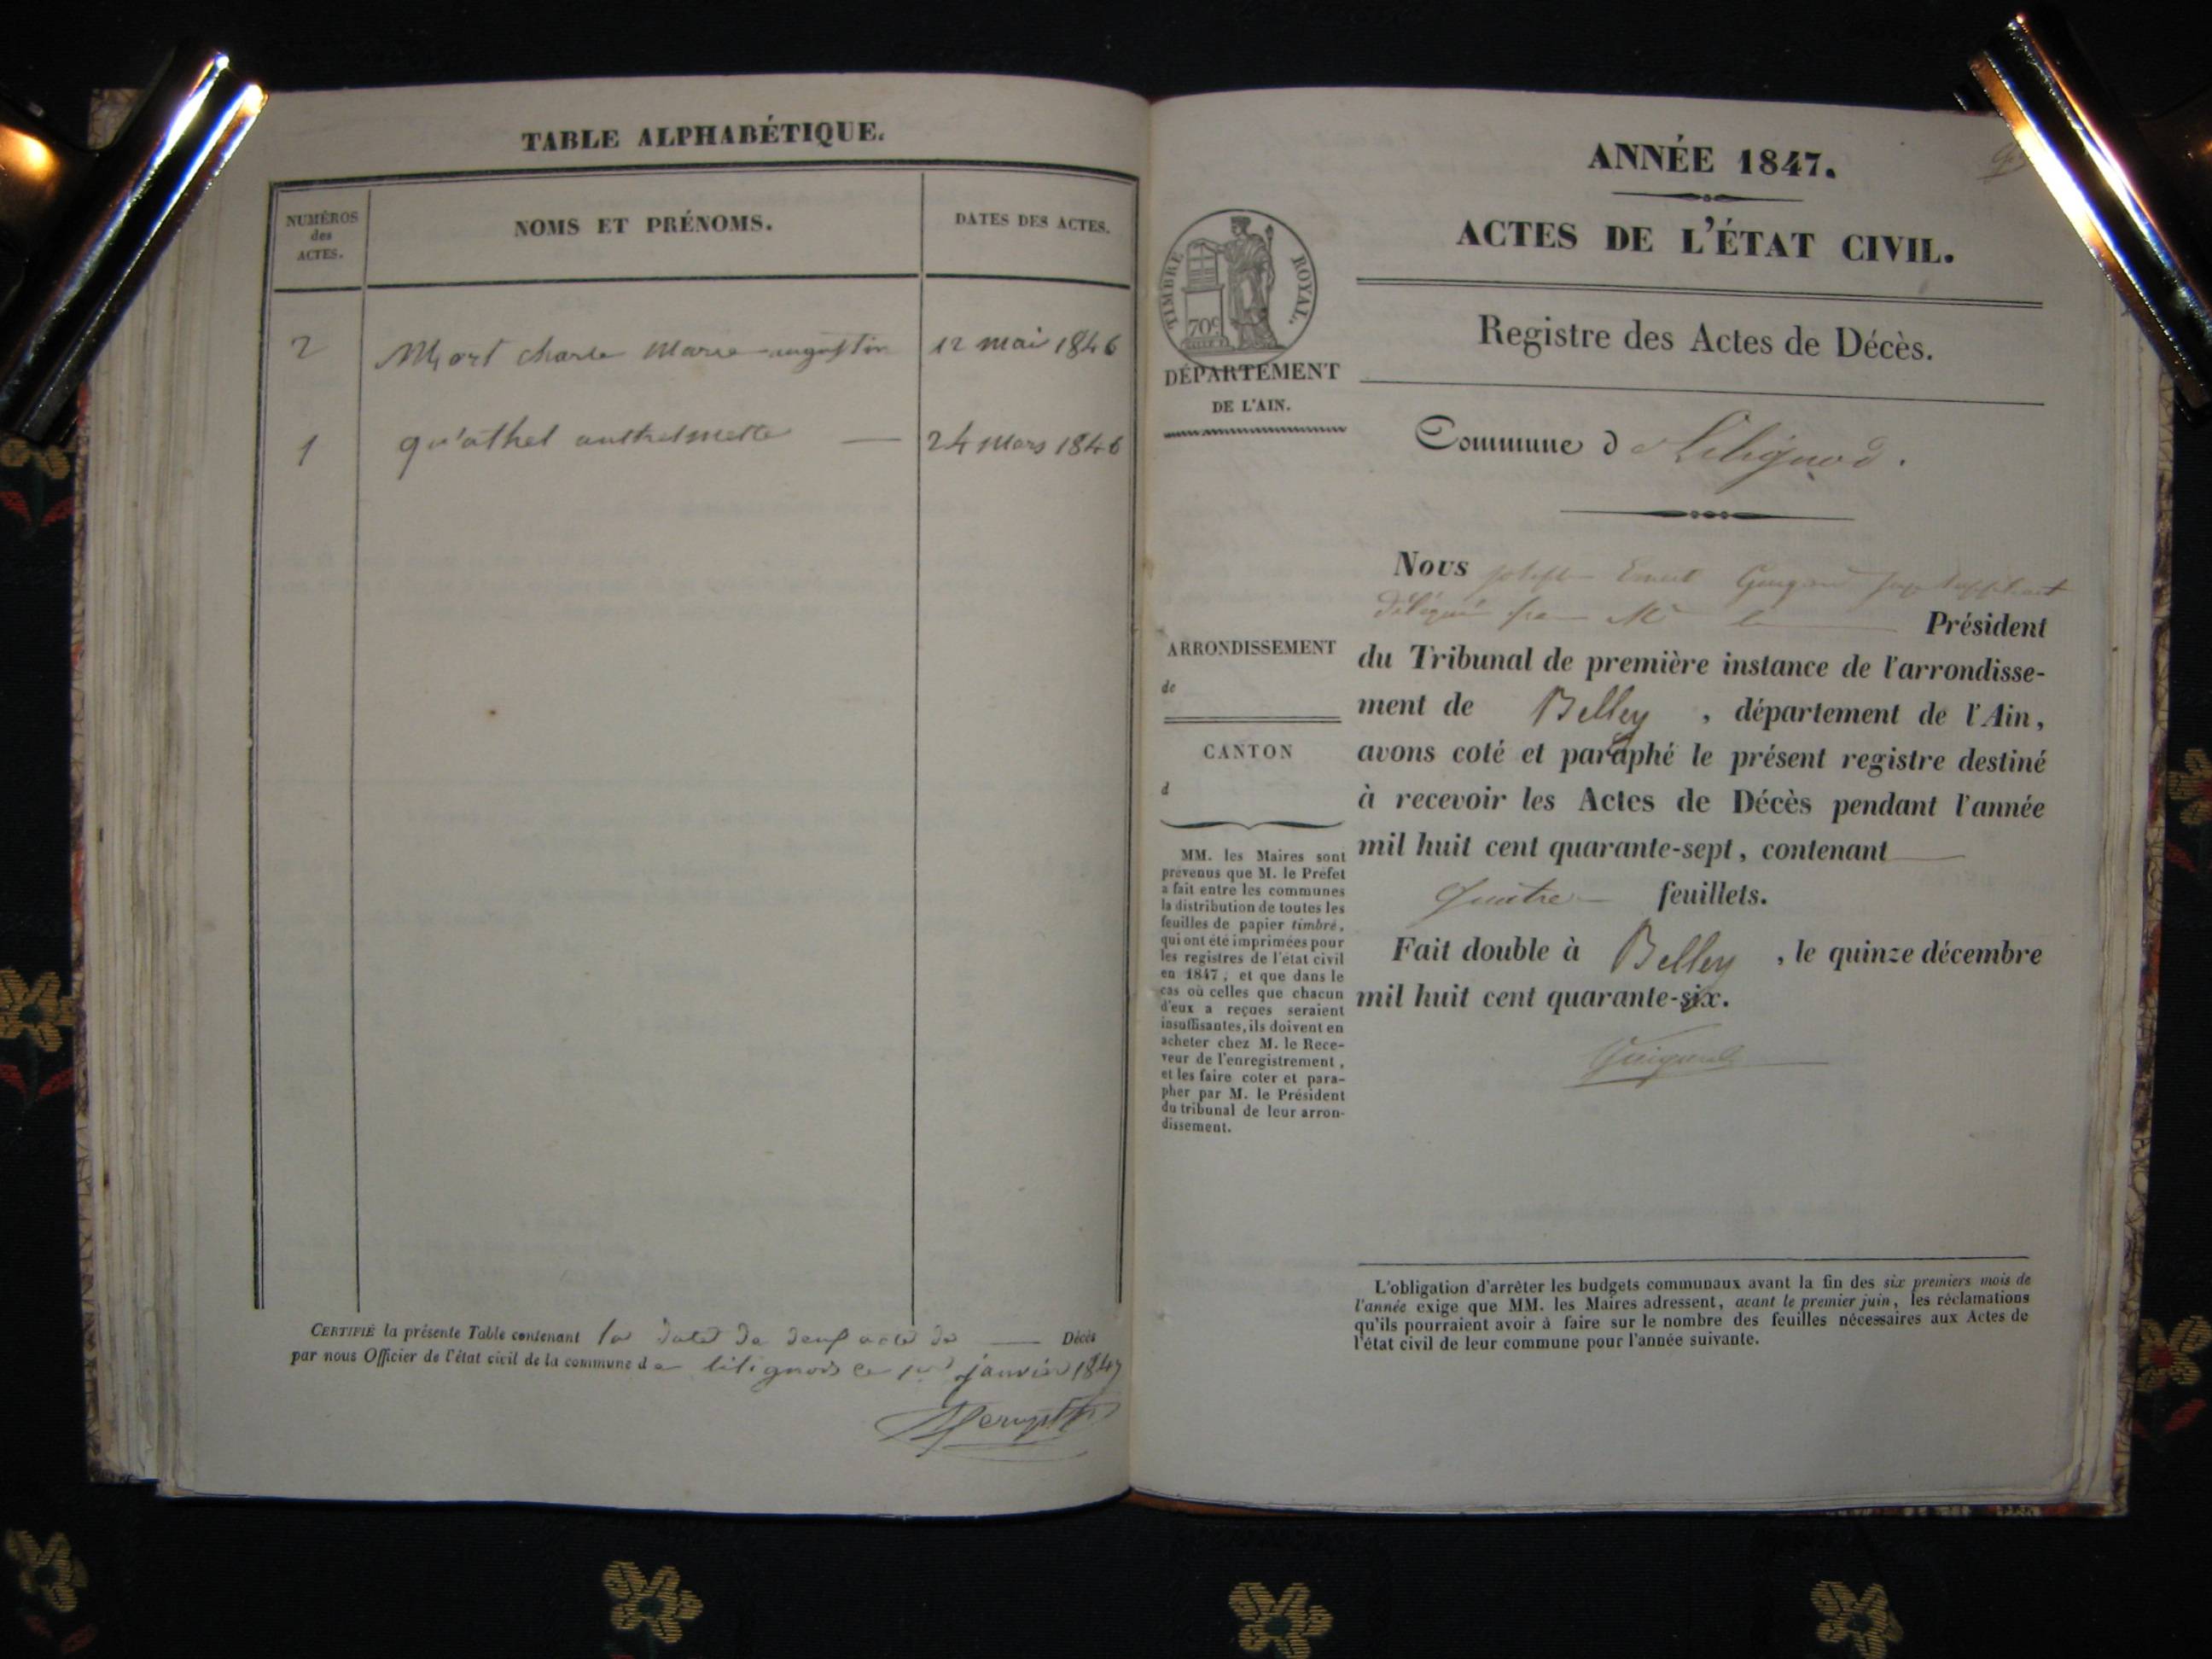 TABLE ALPHABÉTIQUE.
NUMÉROS
des
ACTES.
NOMS ET PRÉNOMS.
DATES DES ACTES.
2 Myort charle marie augustin 12 mai 1846
1 qu'athel anthelmette — 24 mars 1846
CERTIFIÉ la présente Table contenant la date de deux acte de — Décès
par nous Officier de l'état civil de la commune de litignod ce 1er janvier 1847
ANNÉE 1847.
ACTES DE L'ÉTAT CIVIL.
Registre des Actes de Décès.
TIMBRE ROYAL.
70c
DÉPARTEMENT
DE L'AIN.
Commune d
ARRONDISSEMENT
de
CANTON
d
MM. les Maires sont
prévenus que M. le Préfet
a fait entre les communes
la distribution de toutes les
feuilles de papier timbré,
qui ont été imprimées pour
les registres de l'état civil
en 1847, et que dans le
cas où celles que chacun
d'eux a reçues seraient
insuffisantes, ils doivent en
acheter chez M. le Rece-
veur de l'enregistrement,
et les faire coter et para-
pher par M. le Président
du tribunal de leur arron-
dissement.
Nous Joseph Ernest juge suppléant
délégué par Mr le — Président
du Tribunal de première instance de l'arrondisse-
ment de Belley, département de l'Ain,
avons coté et paraphé le présent registre destiné
à recevoir les Actes de Décès pendant l'année
mil huit cent quarante-sept, contenant —
Quatre — feuillets.
Fait double à Belley, le quinze décembre
mil huit cent quarante-six.
L'obligation d'arrêter les budgets communaux avant la fin des six premiers mois de
l'année exige que MM. les Maires adressent, avant le premier juin, les réclamations
qu'ils pourraient avoir à faire sur le nombre des feuilles nécessaires aux Actes de
l'état civil de leur commune pour l'année suivante.